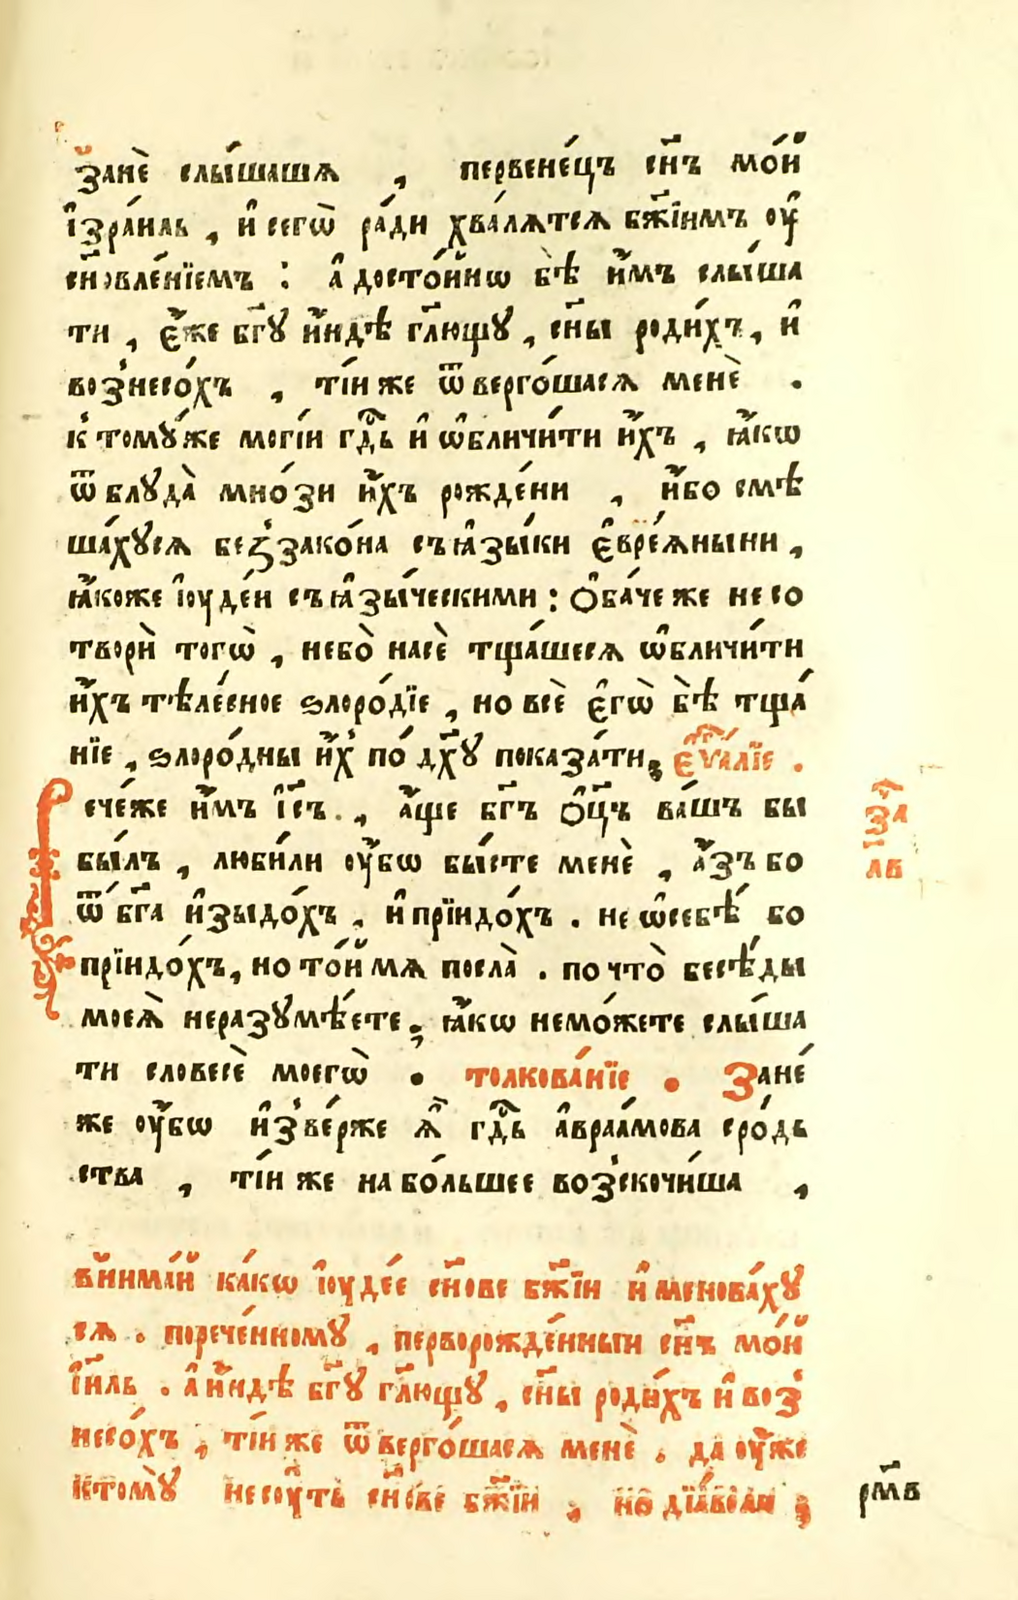 Занѐ слы́шашꙗ , первене́цъ сн҃ъ мо́й
і҆зра́иль , и҆ сегѡ̀ ра́ди хва́лѧтсѧ бж҃їимъ оу҆
сн҃овле́нїемъ : а҆ досто́йнѡ бѣ̀ и҆̀мъ слы́ша
ти , є҆́же бг҃ꙋ и҆́ндѣ гл҃ющꙋ , сн҃ы роди́хъ , и҆
воз̾несо́хъ , ті́и же ѿверго́шасѧ менѐ .
к̾томꙋ́же могі́й гдⷭ҇ь и҆ ѡ҆бличи́ти и҆́хъ , ꙗ҆́кѡ
ѿ блꙋда̀ мно́зи и҆́хъ рожде́ни , и҆́бо смѣ
ша́хꙋсѧ без̾зако́на съ ꙗ҆зы́ки є҆вре́ѧныни ,
ꙗ҆́коже і҆ꙋде́и съ ꙗ҆зы́ческими : Ѻ҆ба́че же не со
творѝ тогѡ̀ , небо̀ насѐ тща́шесѧ ѡ҆бличи́ти
и҆́хъ тѣле́сное ѕлоро́дїе , но всѐ є҆гѡ̀ бѣ̀ тща́
нїе , ѕлоро́дны и҆́х̾ по́ дх҃ꙋ показа́ти , є҆ѵⷢ҇алїе .
ече́же и҆̀мъ і҆с҃ъ . , а҆́ще бг҃ъ ѻ҆ц҃ъ ва́шъ бы
бы́лъ , люби́ли оу҆́бѡ бы́сте менѐ , а҆́зъ бо
ѿ бг҃а и҆зыдо́хъ , и҆ прїидо́хъ . не ѡ҆себѣ́ бо
прїидо́хъ , но то́й мѧ посла̀ . по что̀ бесѣ́ды
моеѧ̀ неразꙋмѣ́ете , ꙗ҆́кѡ немо́жете слы́ша
ти словесѐ моегѡ̀ . толкова́нїе . Зане́
же оу҆́бѡ и҆з̾ве́рже ѧ҆̀ гдⷭ҇ь а҆враа́мова сро́дь
ства , ті́и же на бо́льшее воз̾скочи́ша ,
вниман́й ка́кѡ і҆ꙋде́е сн҃ове бж҃їи и҆ менова́хꙋ
сѧ . порече́нномꙋ , перворожде́нныи сн҃ъ мо́й
і҆и҃ль . а҆ и҆́ндѣ бг҃ꙋ гл҃ющꙋ , сн҃ы роди́хъ и҆ воз̾
несо́хъ , ті́и же ѿверго́шасѧ менѐ . да оу҆́же
ктомꙋ̀ несꙋ́ть сн҃ове бж҃їи , но дїа́воли ,
за҄
і҆
лв
рм҃в